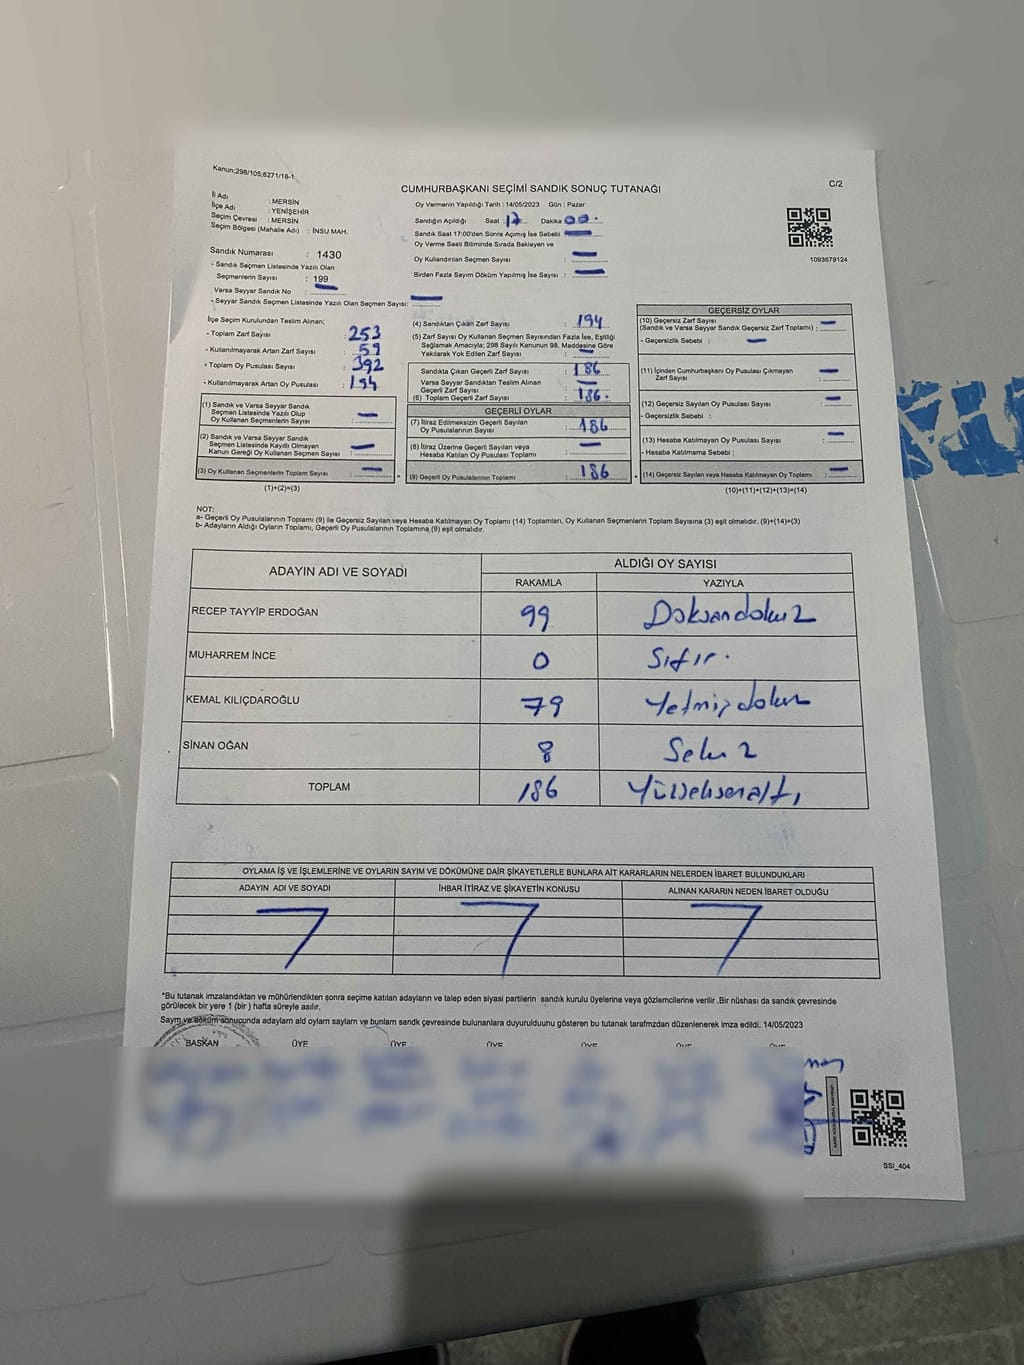 Kanun:298/105,6271/18-1
C/2
CUMHURBAŞKANI SEÇİMİ SANDIK SONUÇ TUTANAĞI
İl Adı : MERSİN
İlçe Adı : YENİŞEHİR
Seçim Çevresi : MERSİN
Seçim Bölgesi (Mahalle Adı) : İNSU MAH.
Oy Vermenin Yapıldığı Tarih : 14/05/2023 Gün : Pazar
Sandığın Açıldığı Saat 17 Dakika 00
Sandık Saat 17:00'den Sonra Açılmış İse Sebebi
Oy Verme Saati Bitiminde Sırada Bekleyen ve
Oy Kullandırılan Seçmen Sayısı :
Birden Fazla Sayım Döküm Yapılmış İse Sayısı :
1093679124
Sandık Numarası : 1430
- Sandık Seçmen Listesinde Yazılı Olan
Seçmenlerin Sayısı : 199
Varsa Seyyar Sandık No :
- Seyyar Sandık Seçmen Listesinde Yazılı Olan Seçmen Sayısı:
İlçe Seçim Kurulundan Teslim Alınan;
- Toplam Zarf Sayısı : 253
- Kullanılmayarak Artan Zarf Sayısı : 59
- Toplam Oy Pusulası Sayısı : 392
- Kullanılmayarak Artan Oy Pusulası : 194
(1) Sandık ve Varsa Seyyar Sandık
Seçmen Listesinde Yazılı Olup
Oy Kullanan Seçmenlerin Sayısı :
(2) Sandık ve Varsa Seyyar Sandık
Seçmen Listesinde Kayıtlı Olmayan
Kanun Gereği Oy Kullanan Seçmen Sayısı :
(3) Oy Kullanan Seçmenlerin Toplam Sayısı :
(1)+(2)=(3)
(4) Sandıktan Çıkan Zarf Sayısı : 194
(5) Zarf Sayısı Oy Kullanan Seçmen Sayısından Fazla İse, Eşitliği
Sağlamak Amacıyla; 298 Sayılı Kanunun 98. Maddesine Göre
Yakılarak Yok Edilen Zarf Sayısı :
Sandıkta Çıkan Geçerli Zarf Sayısı : 186
Varsa Seyyar Sandıktan Teslim Alınan
Geçerli Zarf Sayısı :
(6) Toplam Geçerli Zarf Sayısı : 186.
GEÇERLİ OYLAR
(7) İtiraz Edilmeksizin Geçerli Sayılan
Oy Pusulalarının Sayısı : 186
(8) İtiraz Üzerine Geçerli Sayılan veya
Hesaba Katılan Oy Pusulası Toplamı :
(9) Geçerli Oy Pusulalarının Toplamı : 186
GEÇERSİZ OYLAR
(10) Geçersiz Zarf Sayısı
(Sandık ve Varsa Seyyar Sandık Geçersiz Zarf Toplamı) :
- Geçersizlik Sebebi :
(11) İçinden Cumhurbaşkanı Oy Pusulası Çıkmayan
Zarf Sayısı :
(12) Geçersiz Sayılan Oy Pusulası Sayısı :
- Geçersizlik Sebebi :
(13) Hesaba Katılmayan Oy Pusulası Sayısı :
- Hesaba Katılmama Sebebi :
(14) Geçersiz Sayılan veya Hesaba Katılmayan Oy Toplamı :
(10)+(11)+(12)+(13)=(14)
NOT:
a- Geçerli Oy Pusulalarının Toplamı (9) ile Geçersiz Sayılan veya Hesaba Katılmayan Oy Toplamı (14) Toplamları, Oy Kullanan Seçmenlerin Toplam Sayısına (3) eşit olmalıdır. (9)+(14)=(3)
b- Adayların Aldığı Oyların Toplamı, Geçerli Oy Pusulalarının Toplamına (9) eşit olmalıdır.
ADAYIN ADI VE SOYADI ALDIĞI OY SAYISI
RAKAMLA YAZIYLA
RECEP TAYYİP ERDOĞAN 99 Doksandokuz
MUHARREM İNCE 0 Sıfır.
KEMAL KILIÇDAROĞLU 79 Yetmişdokuz
SİNAN OĞAN 8 Sekiz
TOPLAM 186 Yüzseksenaltı
OYLAMA İŞ VE İŞLEMLERİNE VE OYLARIN SAYIM VE DÖKÜMÜNE DAİR ŞİKAYETLERLE BUNLARA AİT KARARLARIN NELERDEN İBARET BULUNDUKLARI
ADAYIN ADI VE SOYADI İHBAR İTİRAZ VE ŞİKAYETİN KONUSU ALINAN KARARIN NEDEN İBARET OLDUĞU
*Bu tutanak imzalandıktan ve mühürlendikten sonra seçime katılan adayların ve talep eden siyasi partilerin sandık kurulu üyelerine veya gözlemcilerine verilir .Bir nüshası da sandık çevresinde
görülecek bir yere 1 (bir ) hafta süreyle asılır.
Sayım ve döküm sonucunda adayların ald oyların sayları ve bunların sandk çevresinde bulunanlara duyurulduunu gösteren bu tutanak tarafmzdan düzenlenerek imza edildi. 14/05/2023
BAŞKAN ÜYE ÜYE ÜYE ÜYE ÜYE
SSI_404